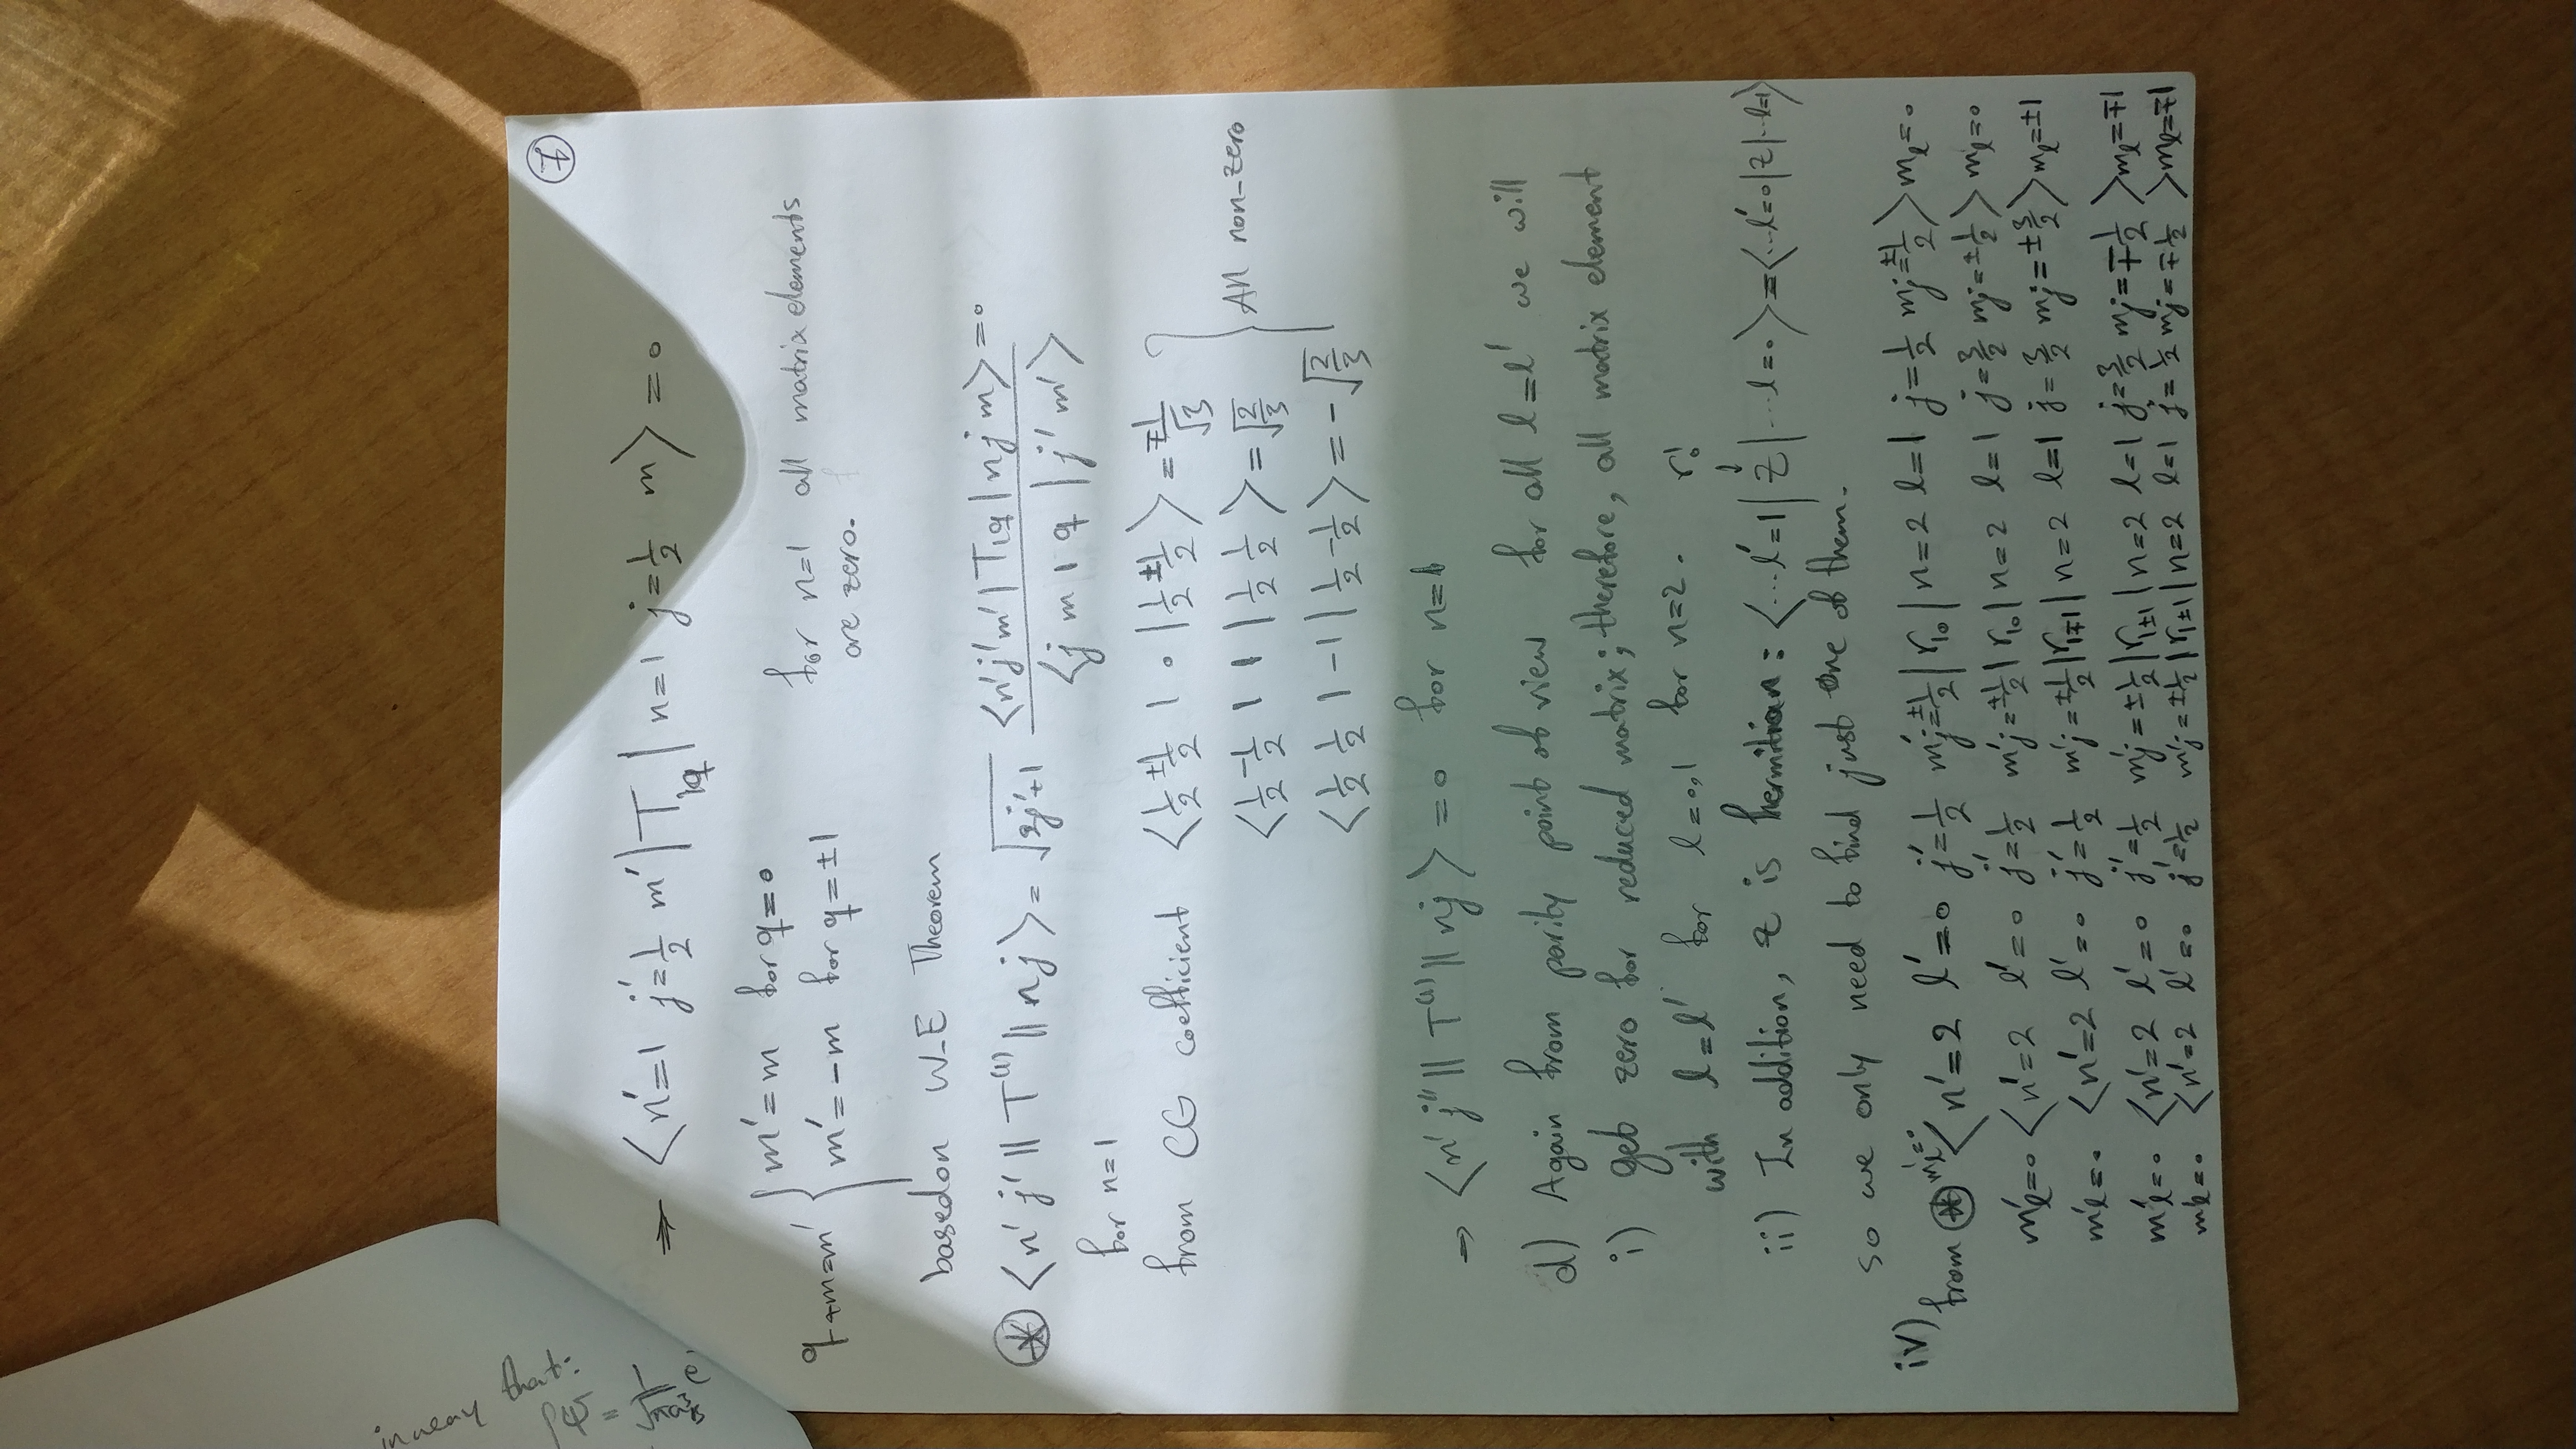 in wear that:
ρψ = 1/√πa³ e
⑦
⇒ ⟨n'=1 j'=1/2 m'|T₁q|n=1 j=1/2 m⟩ = 0
q+m=m' { m'=m for q=0
m'=-m for q=±1
for n=1 all matrix elements
are zero.
based on W-E Theorem
⊛ ⟨n' j' || T⁽¹⁾ || n j⟩ = √(2j'+1) ⟨n'j'm'|T₁q|n j m⟩=0 / ⟨j m 1 q | j' m'⟩
for n=1
from CG coefficient ⟨1/2 ±1/2 1 0 | 1/2 ±1/2⟩ = ∓1/√3
⟨1/2 -1/2 1 1 | 1/2 1/2⟩ = √(2/3) } All non-zero
⟨1/2 1/2 1 -1 | 1/2 -1/2⟩ = -√(2/3)
→ ⟨n' j'' || T⁽¹⁾ || nj⟩ = 0 for n=1
d) Again from parity point of view for all l=l' we will
i) get zero for reduced matrix; therefore, all matrix element
with l=l' for l=0,1 for n=2. r₀¹
↓
ii) In addition, z is hermitian: ⟨...l'=1|z|...l=0⟩=⟨...l'=0|z|...l=1⟩
so we only need to find just one of them.
iv) from ⊛ m'l=0 ⟨n'=2 l'=0 j'=1/2 m'j=±1/2|r₁₀|n=2 l=1 j=1/2 mj=±1/2⟩ml=0
m'l=0 ⟨n'=2 l'=0 j'=1/2 m'j=±1/2|r₁₀|n=2 l=1 j=3/2 mj=±1/2⟩ml=0
m'l=0 ⟨n'=2 l'=0 j'=1/2 m'j=±1/2|r₁∓₁|n=2 l=1 j=3/2 mj=±3/2⟩ml=±1
m'l=0 ⟨n'=2 l'=0 j'=1/2 m'j=±1/2|r₁±₁|n=2 l=1 j=3/2 mj=∓1/2⟩ml=∓1
m'l=0 ⟨n'=2 l'=0 j'=1/2 m'j=±1/2|r₁±₁|n=2 l=1 j=1/2 mj=∓1/2⟩ml=∓1